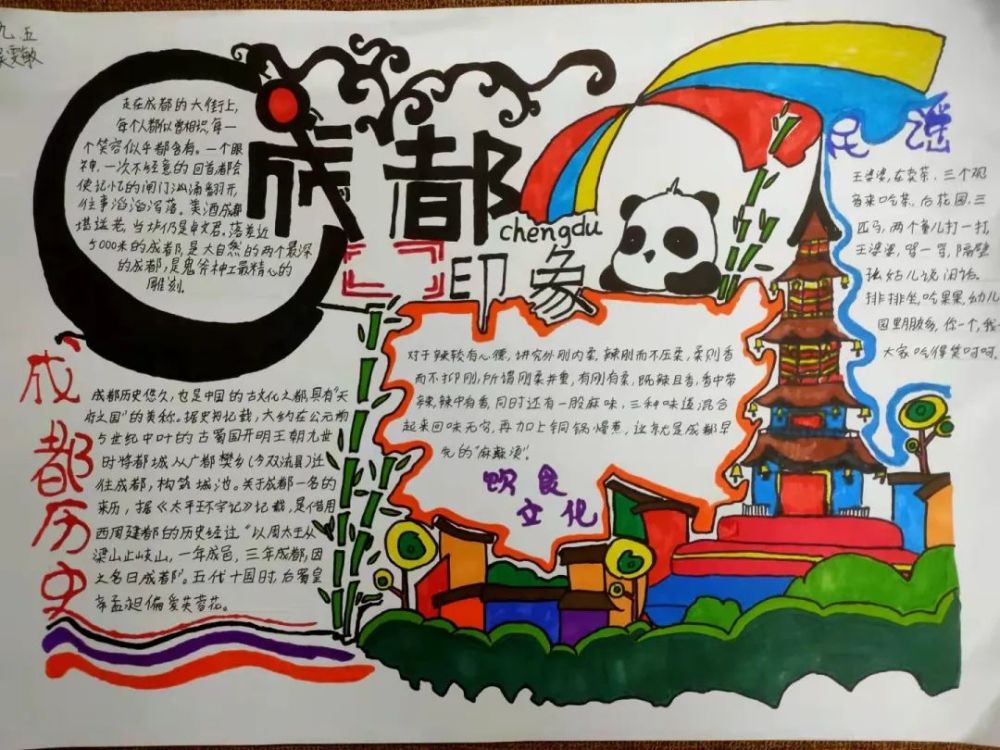 九.五
雯敏
走在成都的大街上,
每个人都似曾相识,每一
个笑容似乎都含有。一个眼
神,一次不经意的回首都会
使记忆的闸门汹涌翻开,
往事滔滔泻落。美酒成都
堪送老,当垆仍是卓文君。落差近
5000米的成都,是大自然的两个最深
的成都,是鬼斧神工最精心的
雕刻。
成都
chengdu
印象
民谣
王婆婆,在卖茶,三个观
音来吃茶。后花园,三
匹马,两个童儿打一打,
王婆婆,骂一骂,隔壁
张姑儿说闲话。
排排坐,吃果果,幼儿
园里朋友多,你一个,我
大家吃得笑呵呵。
成都历史
成都历史悠久,也是中国的古文化之都,具有“天
府之国”的美称。据史书记载,大约在公元前
5世纪中叶的古蜀国开明王朝九世
时将都城从广都樊乡(今双流县)迁
往成都,构筑城池。关于成都一名的
来历,据《太平环宇记》记载,是借用
西周建都的历史经过。“以周太王从
梁山止岐山,一年成邑,三年成都,因
之名曰成都”。五代十国时,后蜀皇
帝孟昶偏爱芙蓉花。
对于辣较有心德,讲究外刚内柔,辣刚而不压柔,柔则香
而不抑刚,所谓刚柔并重,有刚有柔,既辣且香,香中带
辣,辣中有香,同时还有一股麻味,三种味道混合
起来回味无穷,再加上铜锅慢煮,这就是成都早
先的“麻辣烫”。
饮食
文化